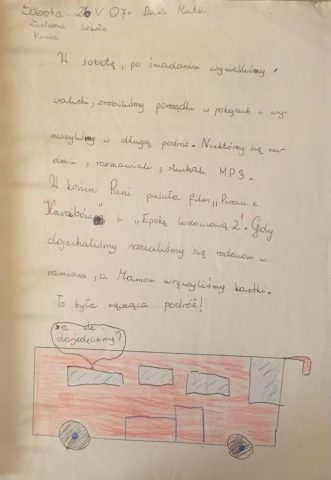 Sobota 26 V 07r Dzień Matki
Zielona Szkoła
Kania
W sobotę, po śniadaniu wynieśliśmy
walizki, zrobiliśmy porządki w pokojach i wy-
ruszyliśmy w długą podróż. Niektórzy się nu-
dzili, rozmawiali, słuchali MP3.
W końcu Pani puściła film „Piraci z
Karaibów" i „Epokę lodowcową 2". Gdy
dojechaliśmy rzuciliśmy się rodzicom w
ramiona, a Mamom wręczyliśmy kartki.
To była męcząca podróż!
za ile
dojedziemy?